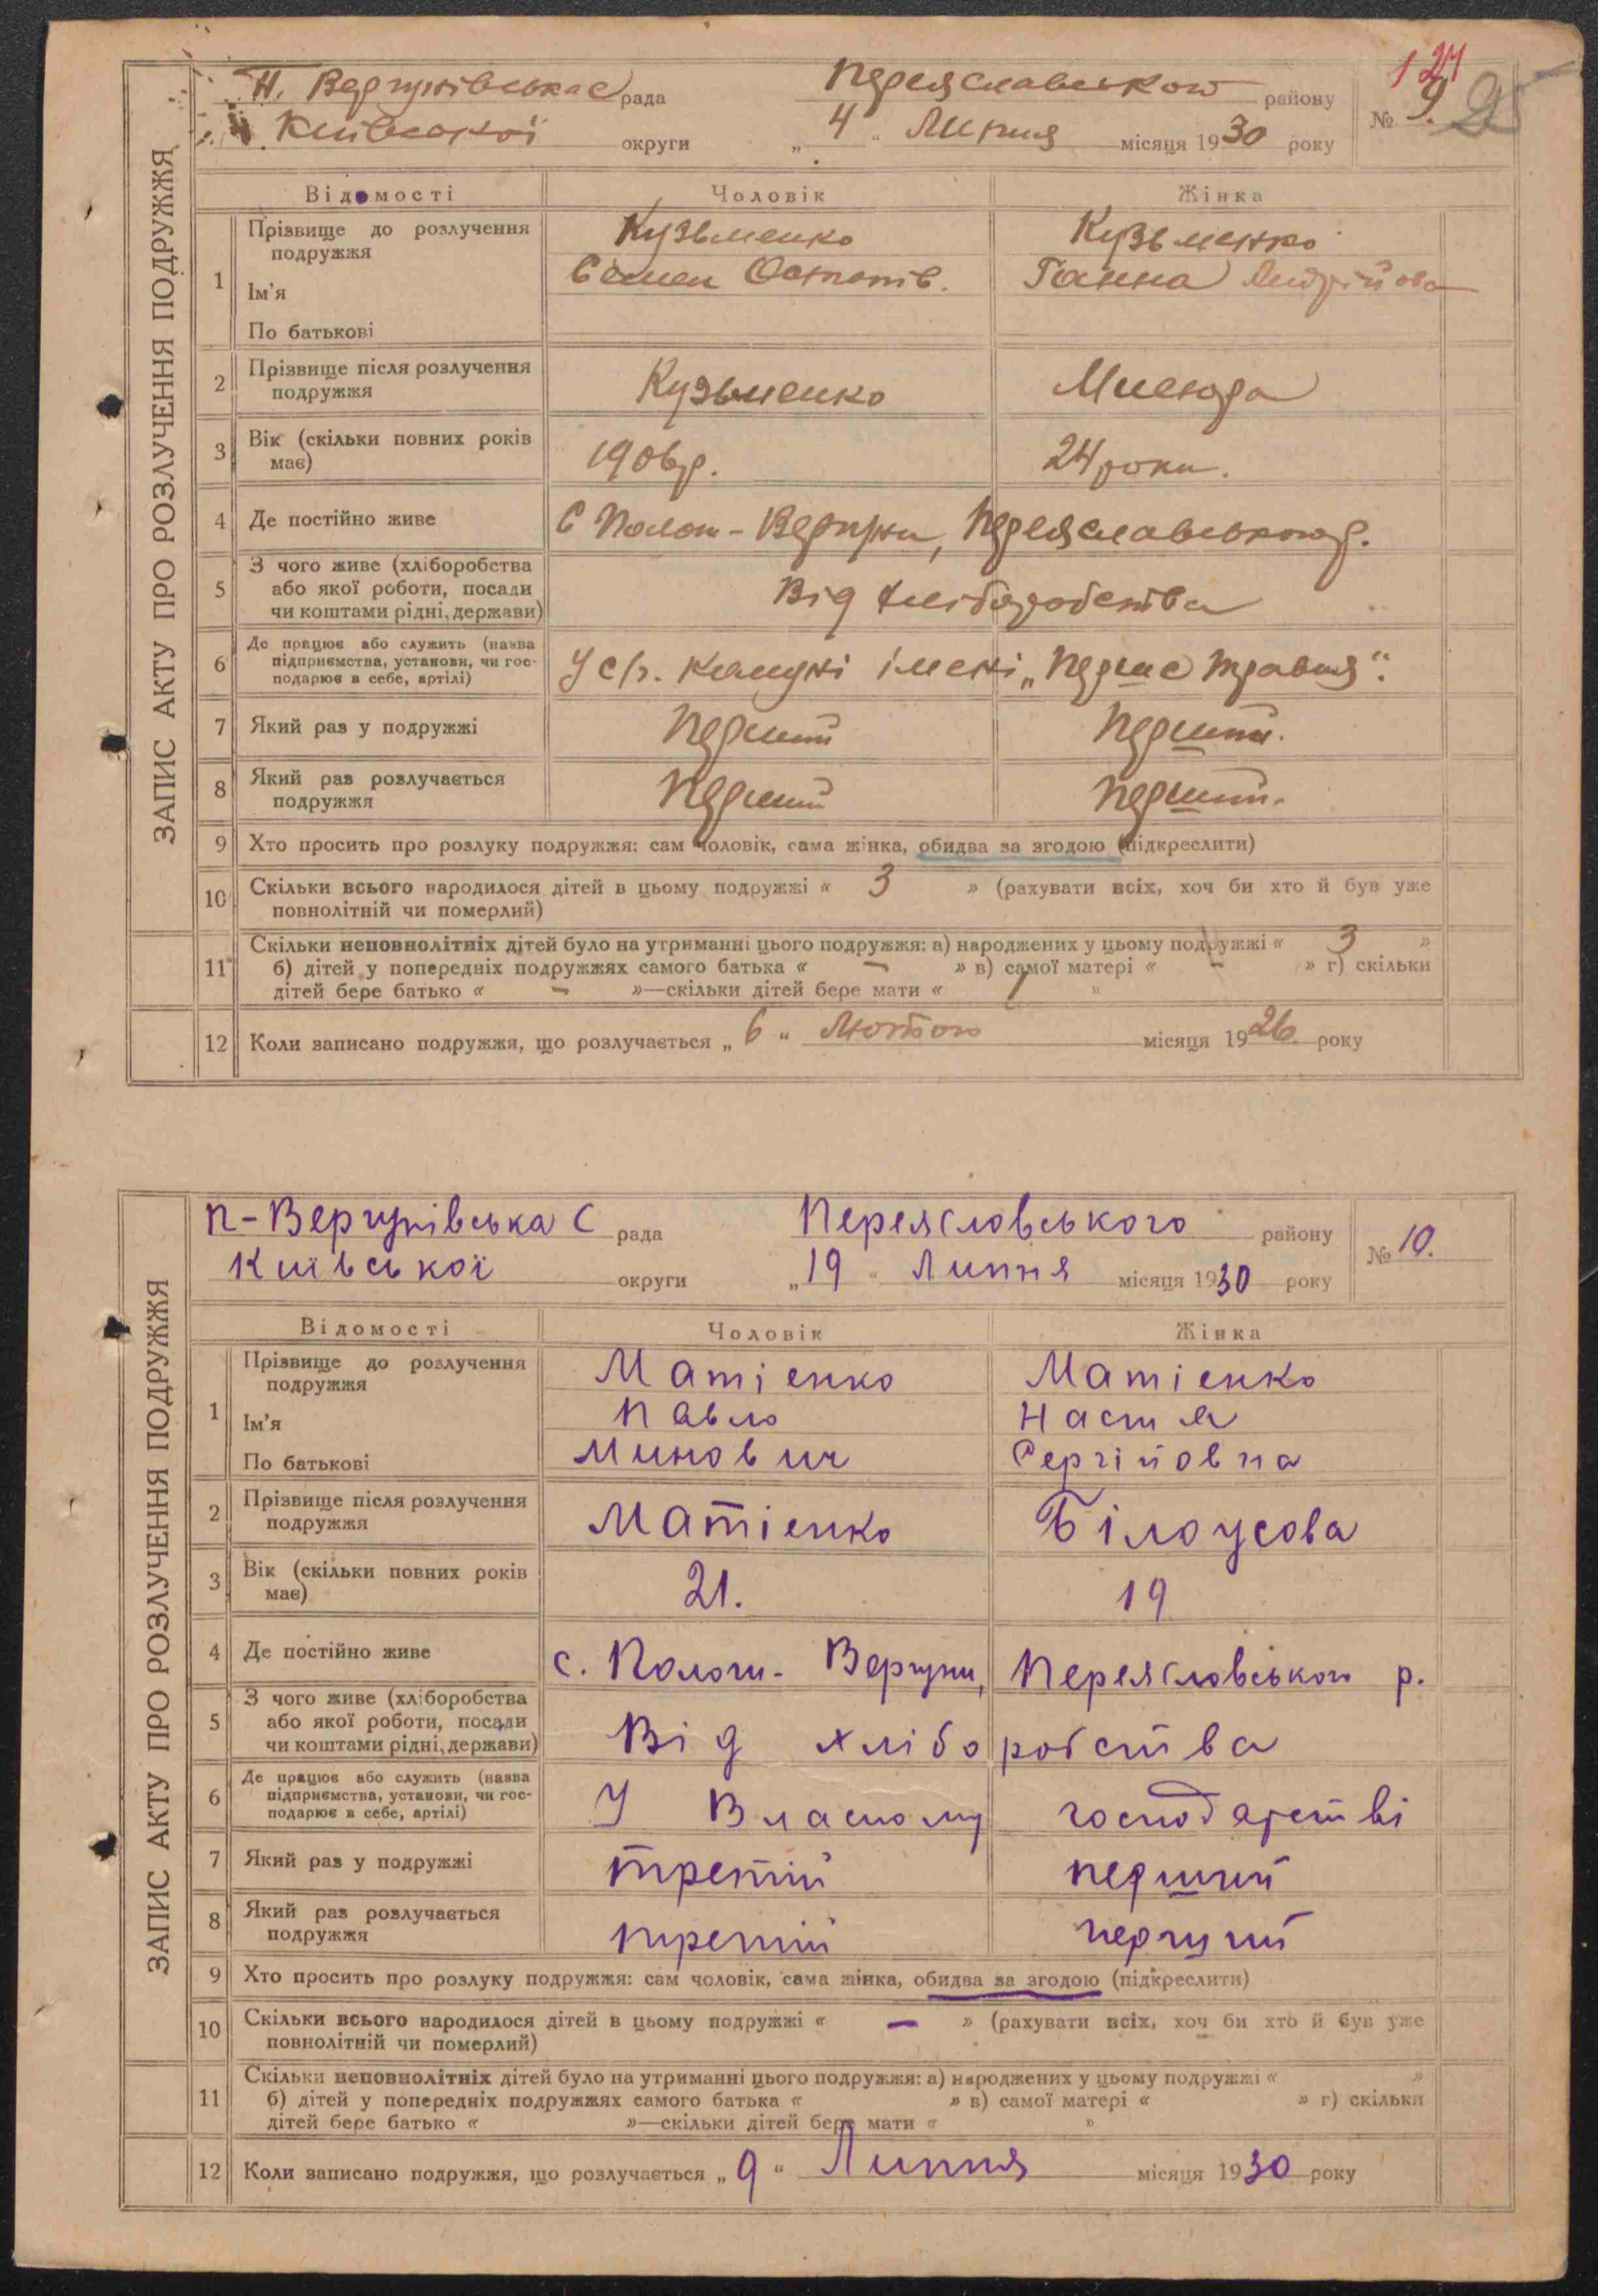 124
П. Вергунівська с рада Переяславського району № 9. 25
Київської округи „ 4 “ Липня місяця 1930 року
ЗАПИС АКТУ ПРО РОЗЛУЧЕННЯ ПОДРУЖЖЯ
Відомості Чоловік Жінка
1 Прізвище до розлучення подружжя Кузьменко Кузьменко
Ім'я Семен Остапів. Ганна Андрійова
По батькові
2 Прізвище після розлучення подружжя Кузьменко
3 Вік (скільки повних років має) 1906 р. 24 роки.
4 Де постійно живе С Полог-Вергуни, Переяславського р.
5 З чого живе (хліборобства або якої роботи, посади чи коштами рідні, держави) Від хліборобства
6 Де працює або служить (назва підприємства, установи, чи господарює в себе, артілі) У с/г. комуні імені „Перше травня“.
7 Який раз у подружжі Перший Перший.
8 Який раз розлучається подружжя Перший Перший.
9 Хто просить про розлуку подружжя: сам чоловік, сама жінка, обидва за згодою (підкреслити)
10 Скільки всього народилося дітей в цьому подружжі « 3 » (рахувати всіх, хоч би хто й був уже
повнолітній чи померлий)
11 Скільки неповнолітніх дітей було на утриманні цього подружжя: а) народжених у цьому подружжі « 3 »
б) дітей у попередніх подружжях самого батька « – » в) самої матері « – » г) скільки
дітей бере батько « – »—скільки дітей бере мати « »
12 Коли записано подружжя, що розлучається „ 6 “ Лютого місяця 1926 року
П-Вергунівська С рада Переяславського району № 10.
Київської округи „ 19 “ Липня місяця 1930 року
ЗАПИС АКТУ ПРО РОЗЛУЧЕННЯ ПОДРУЖЖЯ
Відомості Чоловік Жінка
1 Прізвище до розлучення подружжя Матіенко Матіенко
Ім'я Павло Настя
По батькові Минович Сергійовна
2 Прізвище після розлучення подружжя Матіенко Білоусова
3 Вік (скільки повних років має) 21. 19
4 Де постійно живе с. Пологи-Вергуни, Переяславського р.
5 З чого живе (хліборобства або якої роботи, посади чи коштами рідні, держави) Від хліборобства
6 Де працює або служить (назва підприємства, установи, чи господарює в себе, артілі) У Власному господарстві
7 Який раз у подружжі третій перший
8 Який раз розлучається подружжя третій перший
9 Хто просить про розлуку подружжя: сам чоловік, сама жінка, обидва за згодою (підкреслити)
10 Скільки всього народилося дітей в цьому подружжі « – » (рахувати всіх, хоч би хто й був уже
повнолітній чи померлий)
11 Скільки неповнолітніх дітей було на утриманні цього подружжя: а) народжених у цьому подружжі « »
б) дітей у попередніх подружжях самого батька « » в) самої матері « » г) скільки
дітей бере батько « »—скільки дітей бере мати « »
12 Коли записано подружжя, що розлучається „ 9 “ Липня місяця 1930 року